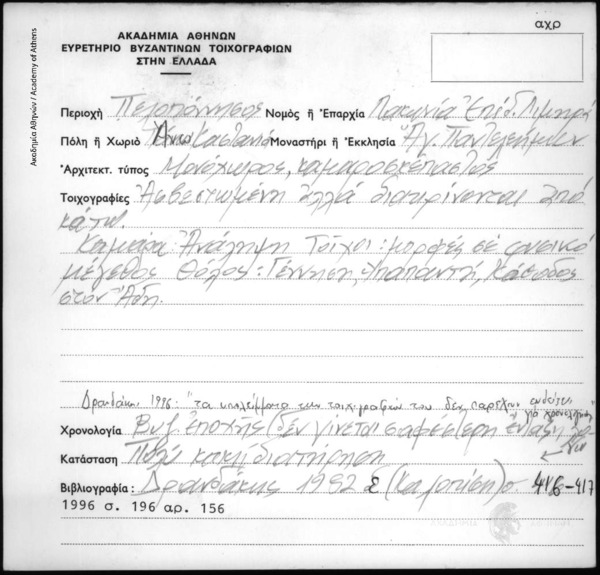 αχρ
ΑΚΑΔΗΜΙΑ ΑΘΗΝΩΝ
ΕΥΡΕΤΗΡΙΟ ΒΥΖΑΝΤΙΝΩΝ ΤΟΙΧΟΓΡΑΦΙΩΝ
ΣΤΗΝ ΕΛΛΑΔΑ
Ακαδημία Αθηνών / Academy of Athens
Περιοχή Πελοπόννησος Νομός ἤ Ἐπαρχία Λακωνία Ἐπίδ. Λιμηρά
Πόλη ἤ Χωριό Ἄνω Καστανιά Μοναστήρι ἤ Ἐκκλησία Ἁγ. Παντελεήμων
Ἀρχιτεκτ. τύπος Μονόχωρος, καμαροσκέπαστος
Τοιχογραφίες Ἀσβεστωμένη ἀλλά διακρίνονται ἀπό
κάτω.
Καμάρα: Ἀνάληψη Τοῖχοι: μορφές σέ φυσικό
μέγεθος Θόλος: Γέννηση, Ὑπαπαντή, Κάθοδος
στόν Ἅδη.
Δρανδάκη 1996: "τα υπολείμματα των τοιχογραφιών του δεν παρέχουν ενδείξεις
για χρονολόγηση"
Χρονολογία Βυζ. ἐποχῆς (δέν γίνεται σαφέστερη ἔνταξη
Κατάσταση Πολύ κακή διατήρηση
Βιβλιογραφία: Δρανδάκης 1982 (Καλοτύπη) σ. 416-417
1996 σ. 196 αρ. 156